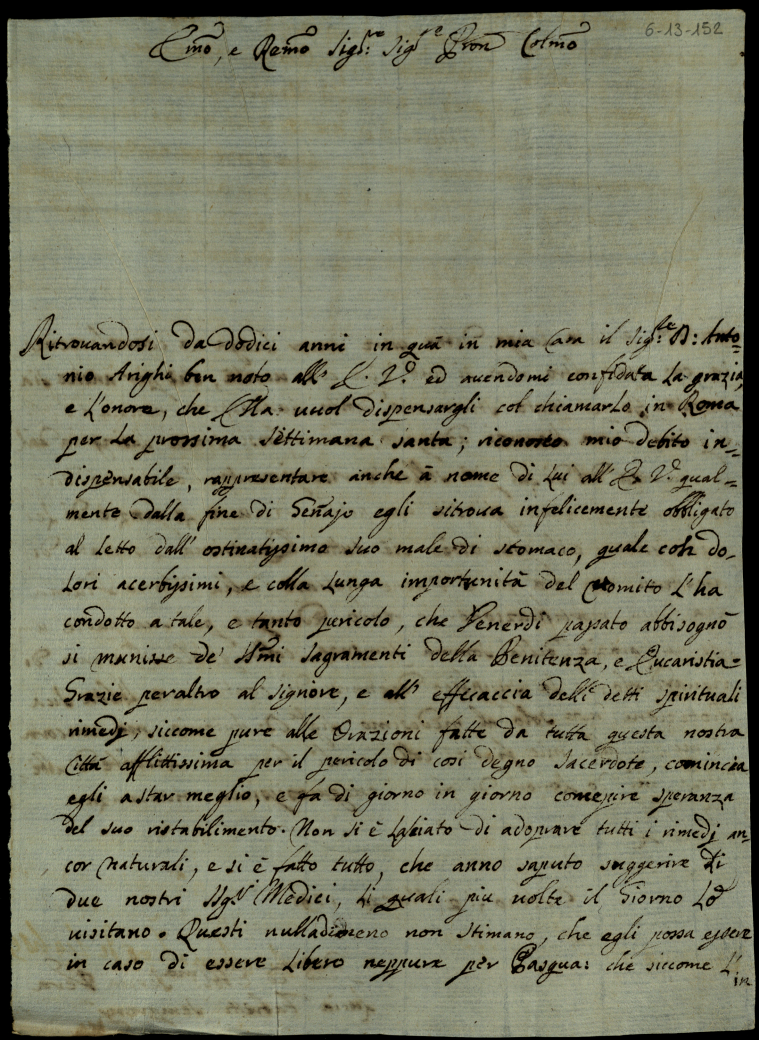 6-13-152
Emo, e Remo Sigre: Sigre Pron Colmo
Ritrouandosi da dodici anni in quà in mia Casa il Sigre D: Anto=
nio Arighi ben noto all' E. V. ed auendomi confidata la grazia,
e l'onore, che Ella uuol dispensargli col chiamarlo in Roma
per la prossima settimana santa; riconosco mio debito in=
dispensabile, rappresentare anche à nome di lui all' E. V. qual=
mente dalla fine di Genajo egli sitroua infelicemente obbligato
al letto dall' ostinatissimo suo male di stomaco, quale con do=
lori acerbissimi, e colla lunga importunità del vomito l'ha
condotto a tale, e tanto pericolo, che Venerdì passato abbisognò
si munisse de' SSmi Sagramenti della Penitenza, e Eucaristia=
Grazie peraltro al Signore, e all' effecaccia delli detti spirituali
rimedj, siccome pure alle Orazioni fatte da tutta questa nostra
Città afflittissima per il pericolo di così degno Sacerdote, comincia
egli a star meglio, e fa di giorno in giorno concepire speranza
del suo ristabilimento. Non si è lasciato di adoprare tutti i rimedj an=
cor naturali, e si è fatto tutto, che anno saputo suggerire di
due nostri SSgri Medici, li quali piu uolte il Giorno lo
uisitano. Questi nulladimeno non stimano, che egli possa essere
in caso di essere libero neppure per Pasqua: che siccome l'in